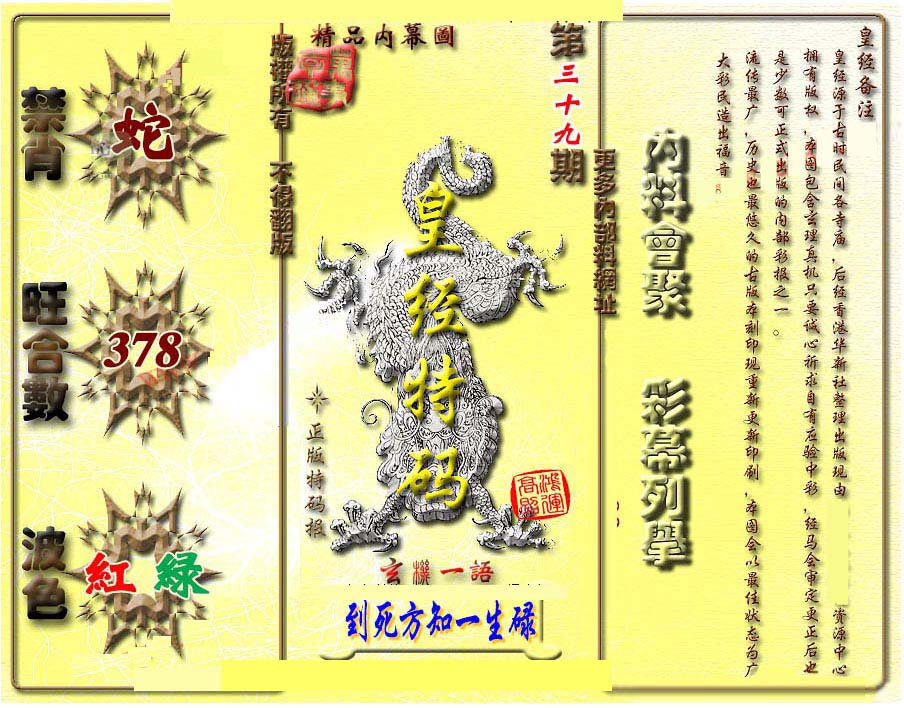 精品内幕圖
第三十九期
版權所有 不得翻版
更多內部料網址
禁肖
蛇
旺合數
378
波色
紅 綠
皇经特码
正版特码报
鴻運高照
玄機一語
到死方知一生碌
內料會聚 彩幕列舉
皇经备注
皇经源于古时民间各寺庙，后经香港华新社整理出版现由 资源中心
拥有版权，本图包含玄理真机只要诚心祈求自有应验中彩，经马会审定更正后也
是少数可正式出版的内部彩报之一。
流传最广，历史也最悠久的古版本刻印现重新更新印刷，本图会以最佳状态为广
大彩民造出福音。